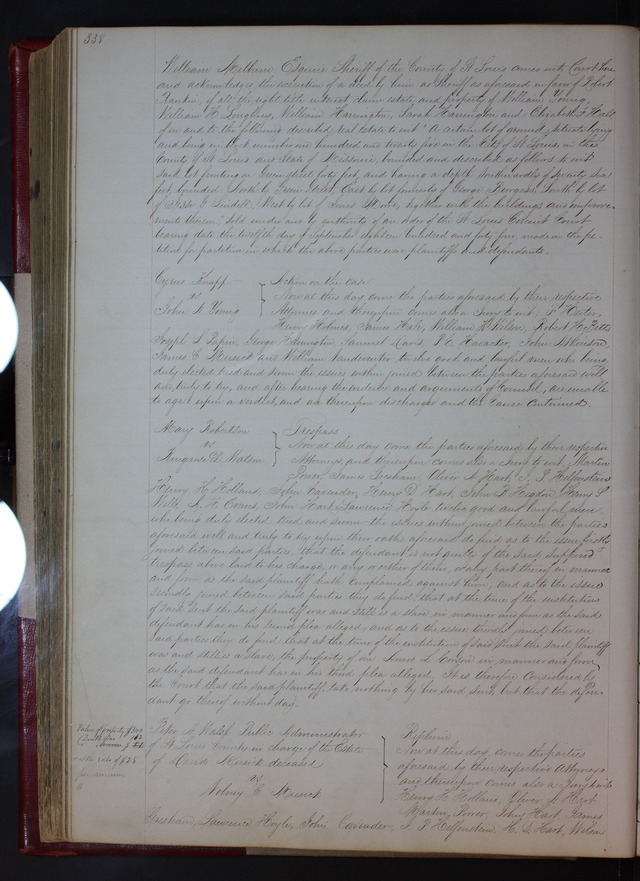 338
William Milburn Esquire Sheriff of the County of St Louis comes into Court here
and acknowledges the execution of a deed by him as Sheriff as aforesaid in favor of Robert
Rankin, of all the right title interest claim estate, and property of William Young,
William H. Loughlins, William Harrington, Sarah Harrington and Elizabeth F. Hall
of in and to the following described real estate to wit: "A certain lot of ground, situate lying
and being in block number one hundred and twenty five in the City of St Louis, in the
County of St Louis and State of Missouri, bounded and described as follows to wit:
Said lot fronting on Green Street forty feet, and having a depth Southwardly of Seventy six
feet, bounded North by Green Street, East by lot formerly of George Burgess, South by lot
of Jesse G Lindell, West by lot of Jones Moore, together with the buildings and improve
ments thereon," Sold under and by authority of an order of the St Louis Circuit Court
bearing date the twelfth day of September eighteen hundred and forty four, made in the pe-
tition for partition in which the above parties were plaintiffs and defendants.
Cyrus Knapp
vs
John N Young
Action on the case
Now at this day come the parties aforesaid by their respective
Attorneys and thereupon comes also a Jury to wit, P Hister,
Henry Holmes, James Hale, William H Wilson, Robert H. Betts
Joseph L Papin, George Edrington, Samuel Davis, P. C. Haracker, John
James C. and William twelve good and lawful men who being
duly elected tried and sworn the issues within joined between the parties aforesaid well
and truly to try, and after hearing the evidence and arguments of Counsel, are unable
to agree upon a verdict, and are thereupon discharged and the Cause Continued.
Mary Robertson
vs
Ringrose D. Watson
Trespass
Now at this day come the parties aforesaid by their respective
Attorneys, and thereupon comes also a Jury to wit, Martin
Power, James Gresham, Oliver A Hart, T. P. Helfenstein
Henry H. Holland, John Cavender, Henry D. Hart, John P. Higdon, Harry L
Wells, L. H. Evans, John Hart, Lawrence Hoyle twelve good and lawful men
who being duly elected tried and sworn the issues within joined between the parties
aforesaid well and truly to try upon their oaths aforesaid do find as to the issue firstly
joined between said parties, that the defendant is not guilty of the said supposed
trespass above laid to his charge, or any or either of them, or any part thereof, in manner
and form as the said plaintiff hath Complained against him, and as to the issue
secondly joined between said parties they do find that at the time of the institution
of said suit the said plaintiff was and still is a slave in manner and form as the said
defendant has in his second plea alleged, and as to the issue thirdly joined between
said parties they do find that at the time of the institution of said suit the said plaintiff
was and still is a slave, the property of one James L. in manner and form
as the said defendant has in his third plea alleged. It is therefore Considered by
the Court that the said plaintiff take nothing by her said suit, but that the defen
dant go thereof without day.
Value of property $300
at the rate of $25
per annum
Peter W Walsh Public Administrator
of St Louis County in charge of the Estate
of David Musick deceased
vs
Abney C Musick
Replevin
Now at this day come the parties
aforesaid by their respective Attorneys
and thereupon comes also a Jury to wit
Henry H. Holland, Oliver A. Hart
Martin Power, John Hart, James
Gresham, Lawrence Hoyle, John Cavender, T. P. Helfenstein, H. D. Hart, Wilson